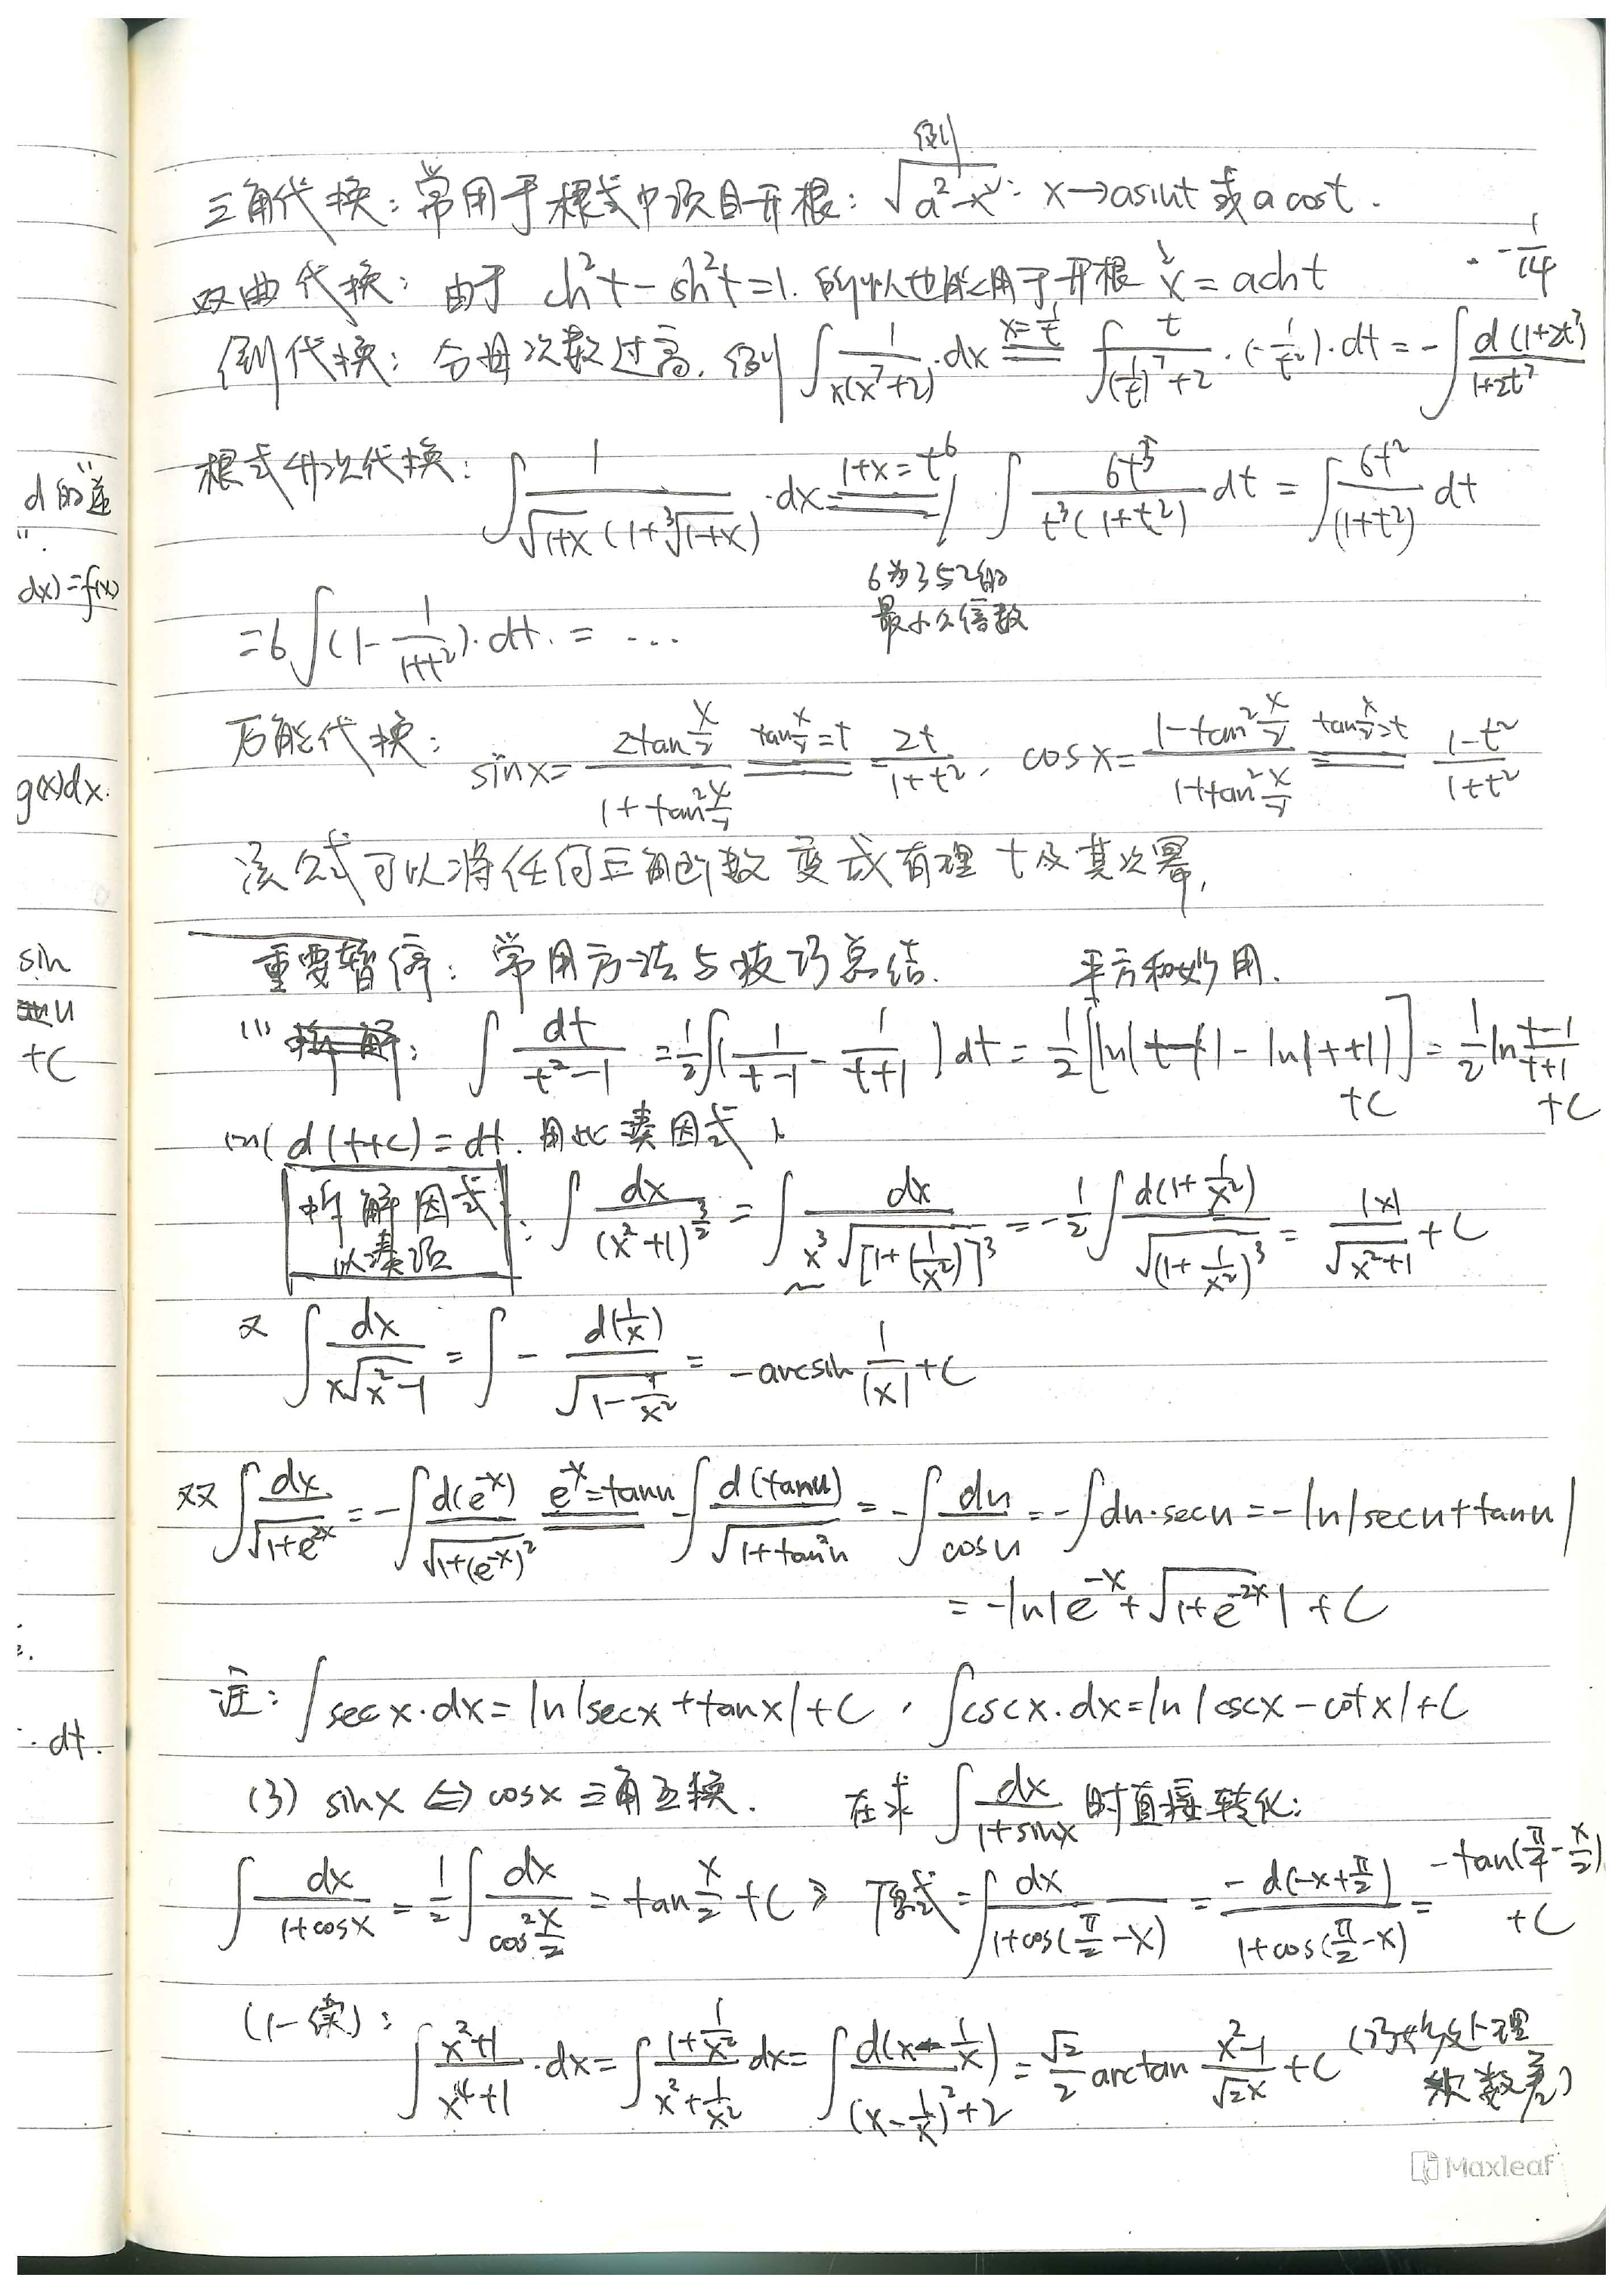 例
三角代换：常用于根式中项目开根：√(a²-x²)：x→asint 或 a cost.
双曲代换：由于 ch²t - sh²t = 1. 所以也能用于开根 x = acht
倒代换：分母次数过高. 例 ∫ 1/(x(x⁷+2)) · dx (x=1/t)== ∫ t/((1/t)⁷+2) · (-1/t²) · dt = - ∫ d(1+2t⁷)/(1+2t⁷) · -1/14
根式升次代换：∫ 1/(√(1+x) (1+³√(1+x))) · dx (1+x=t⁶)== ∫ 6t⁵/(t³(1+t²)) dt = ∫ 6t²/(1+t²) dt
6为3与2的
最小公倍数
= 6∫(1 - 1/(1+t²)) · dt. = ...
万能代换：sinx = 2tan(x/2)/(1+tan²(x/2)) (tan(x/2)=t)== 2t/(1+t²), cosx = (1-tan²(x/2))/(1+tan²(x/2)) (tan(x/2)=t)== (1-t²)/(1+t²)
该公式可以将任何三角函数变成有理 t 及其次幂,
重要暂停：常用方法与技巧总结. 平方和妙用.
(1) 拆解：∫ dt/(t²-1) = 1/2 ∫(1/(t-1) - 1/(t+1)) dt = 1/2 [ln|t-1| - ln|t+1|] + C = 1/2 ln (t-1)/(t+1) + C
(2) d(t+c) = dt. 用此凑因式
拆解因式以凑项：∫ dx/(x²+1)^(3/2) = ∫ dx/(x³√[1+(1/x²)]³) = -1/2 ∫ d(1+1/x²)/√(1+1/x²)³ = |x|/√(x²+1) + C
又 ∫ dx/(x√(x²-1)) = ∫ - d(1/x)/√(1-1/x²) = -arcsin 1/|x| + C
又又 ∫ dx/√(1+e^(2x)) = -∫ d(e^(-x))/√(1+(e^(-x))²) (e^(-x)=tanu)== -∫ d(tanu)/√(1+tan²u) = -∫ du/cosu = -∫du·secu = -ln|secu+tanu|
= -ln|e^(-x)+√(1+e^(-2x))| + C
注：∫secx·dx = ln|secx+tanx|+C, ∫cscx·dx = ln|cscx-cotx|+C
(3) sinx ⇔ cosx 三角互换. 在求 ∫ dx/(1+sinx) 时直接转化:
∫ dx/(1+cosx) = 1/2 ∫ dx/cos²(x/2) = tan(x/2) + C ⇒ 原式 = ∫ dx/(1+cos(π/2-x)) = -d(-x+π/2)/(1+cos(π/2-x)) = -tan(π/4-x/2) + C
(1-续)：∫ (x²+1)/(x⁴+1) · dx = ∫ (1+1/x²)/(x²+1/x²) dx = ∫ d(x-1/x)/((x-1/x)²+2) = √2/2 arctan (x²-1)/(√2x) + C (巧妙处理
次数差)
d的逆
dx)=f(x)
g(x)dx.
sin
u
+C
dt.
Maxleaf